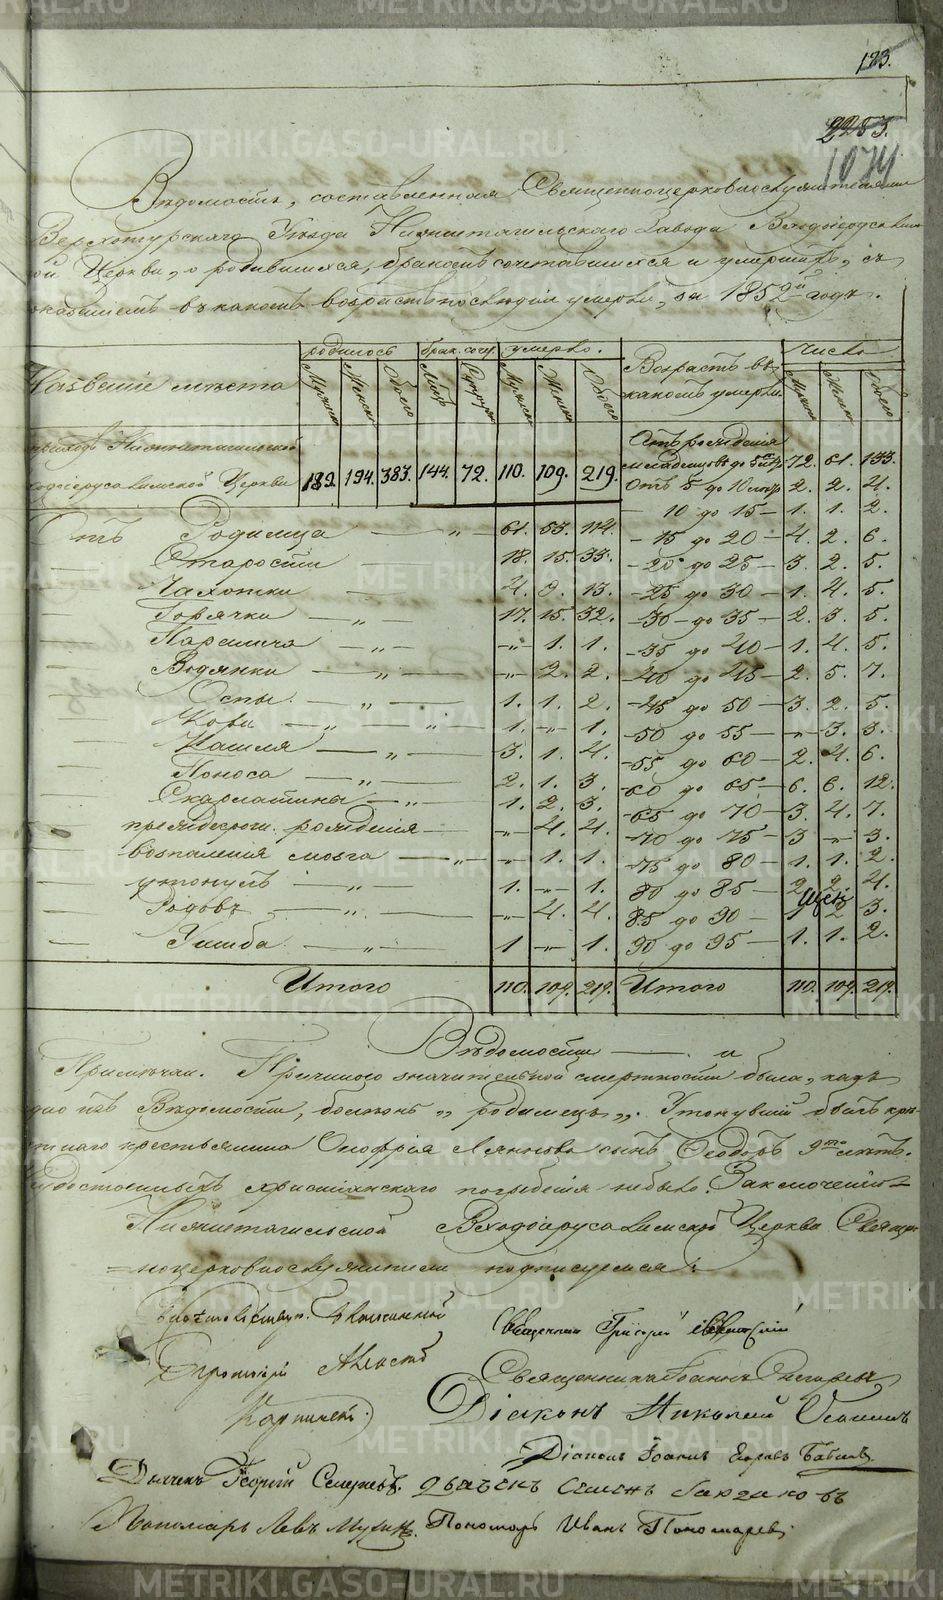 123.
2253.
1074
Вѣдомость, составленная Священноцерковнослужителями
Верхотурскаго Уѣзда Нижнетагильскаго Завода Входоіерусалимс
ой Церкви, о родившихся, бракомъ сочетавшихся и умершихъ, съ
показаніемъ въ какомъ возрастѣ послѣдніи умерли, за 1852й годъ.
Названіе мѣста
родилось
брак. соч.
умерло.
Возрастъ въ
какомъ умерли.
Число
Мужеска Женска Обоего
Лицъ Супруж
Мужеска Женска Обоего
Мужска Женска Обоего
приходъ Нижнетагильской
Входоіерусалимской Церкви 189. 194. 383. 144. 72. 110. 109. 219.
Отъ рожденія
младенцевъ до 5 72. 61. 133.
Отъ 5 до 10 2. 2. 4.
10 до 15 — 1. 1. 2.
Отъ Родимца — „ — 61. 53. 114. — 15 до 20 — 4. 2. 6.
Старости 18. 15. 33. — 20 до 25 — 3. 2. 5.
Чахотки 4. 9. 13. — 25 до 30 — 1. 4. 5.
Горячки — „ 17. 15. 32. — 30 — до 35 — 2. 3. 5.
Паралича — „ — „ 1. 1. — 35 до 40 — 1. 4. 5.
Водянки — „ — „ 2. 2. — 40 до 45 — 2. 5. 7.
Оспы — „ — 1. 1. 2. — 45 до 50 — 3. 2. 5.
— „ — „ 1. „ 1. — 50 до 55 — „ 3. 3.
Кашля — „ 3. 1. 4. — 55 до 60 — 2. 4. 6.
Поноса — „ 2. 1. 3. — 60 до 65 — 6. 6. 12.
Скарлатины — „ — 1. 2. 3. — 65 до 70 — 3. 4. 7.
рожденія — „ 4. 4. — 70 до 75 — 3 „ 3.
воспаленія мозга — „ — „ 1. 1. — 75 до 80 — 1. 1. 2.
утонулъ — „ — 1. „ 1. 80 до 85 — 2 2. 4.
Родовъ — „ — „ 4. 4. 85 до 90 — 2 3.
Ушиба — „ — 1 „ 1. 90 до 95 — 1. 1. 2.
Итого 110. 109. 219. Итого 110. 109. 219.
Вѣдомости
Примѣчан. Причиною значительной смертности былъ, какъ
изъ Вѣдомости, болѣзнь „родимецъ„. Утонувшій былъ
крестьянина Онофрія сынъ Ѳеодоръ 9ти лѣтъ.
Удостоенныхъ христіанскаго погребенія небыло. Заключеніе
Нижнетагильской Входоіерусалимской Церкви Священ=
=ноцерковнослужители подписуемся:
Священникъ Григорій
Протоіерей
Священникъ Іоаннъ
Діаконъ Николай
Діаконъ Іоаннъ
Дьячекъ Георгій Дьячекъ Семенъ
Пономарь Левъ Мухинъ. Пономарь Иванъ Пономаревъ
METRIKI.GASO-URAL.RU